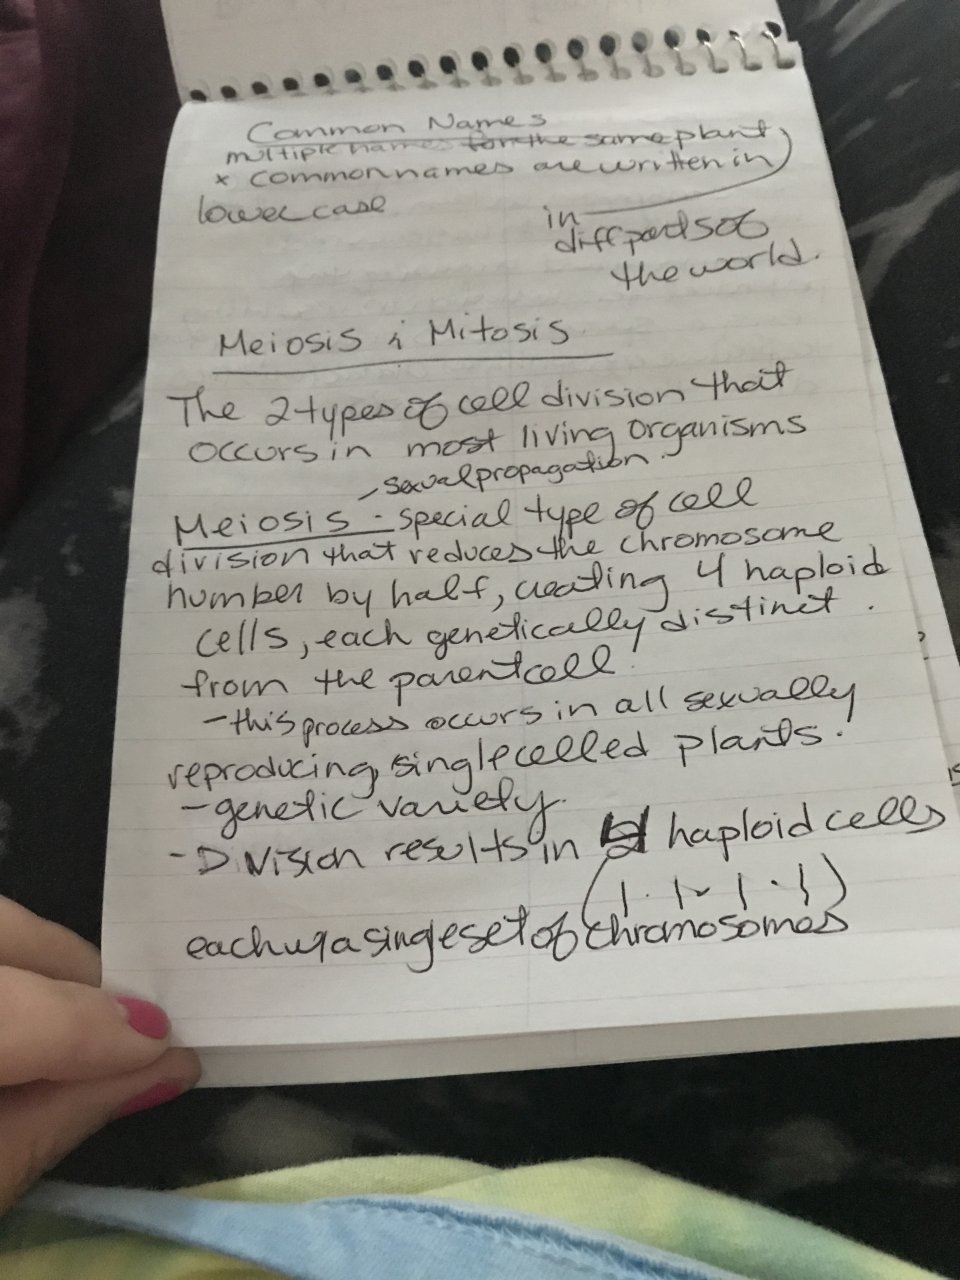 Common Names
multiple names for the same plant
* common names are written in
lowercase
in
diff parts of
the world.
Meiosis & Mitosis
The 2 types of cell division that
occurs in most living organisms
- sexual propagation.
Meiosis - special type of cell
division that reduces the chromosome
number by half, creating 4 haploid
cells, each genetically distinct
from the parent cell!
- this process occurs in all sexually
reproducing, single celled plants!
- genetic variety.
- Division results in 4 haploid cells
each w/ a single set of chromosomes